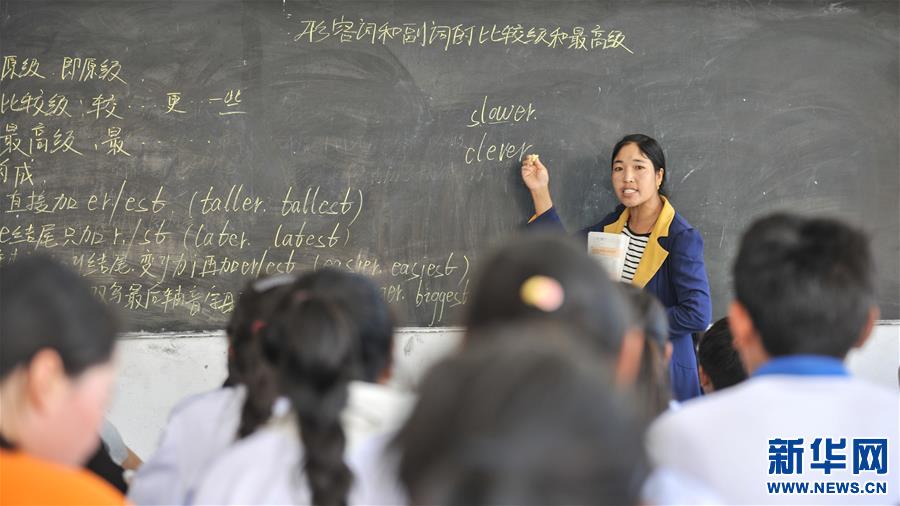 形容词和副词的比较级和最高级
原级 即原级
比较级:较…更…一些
最高级:最…
构成
直接加 er/est. (taller. tallest)
e结尾只加r./st (later. latest)
结尾.变 再加er/est. easiest)
双写最 biggest
slower.
clever.
新华网
WWW.NEWS.CN